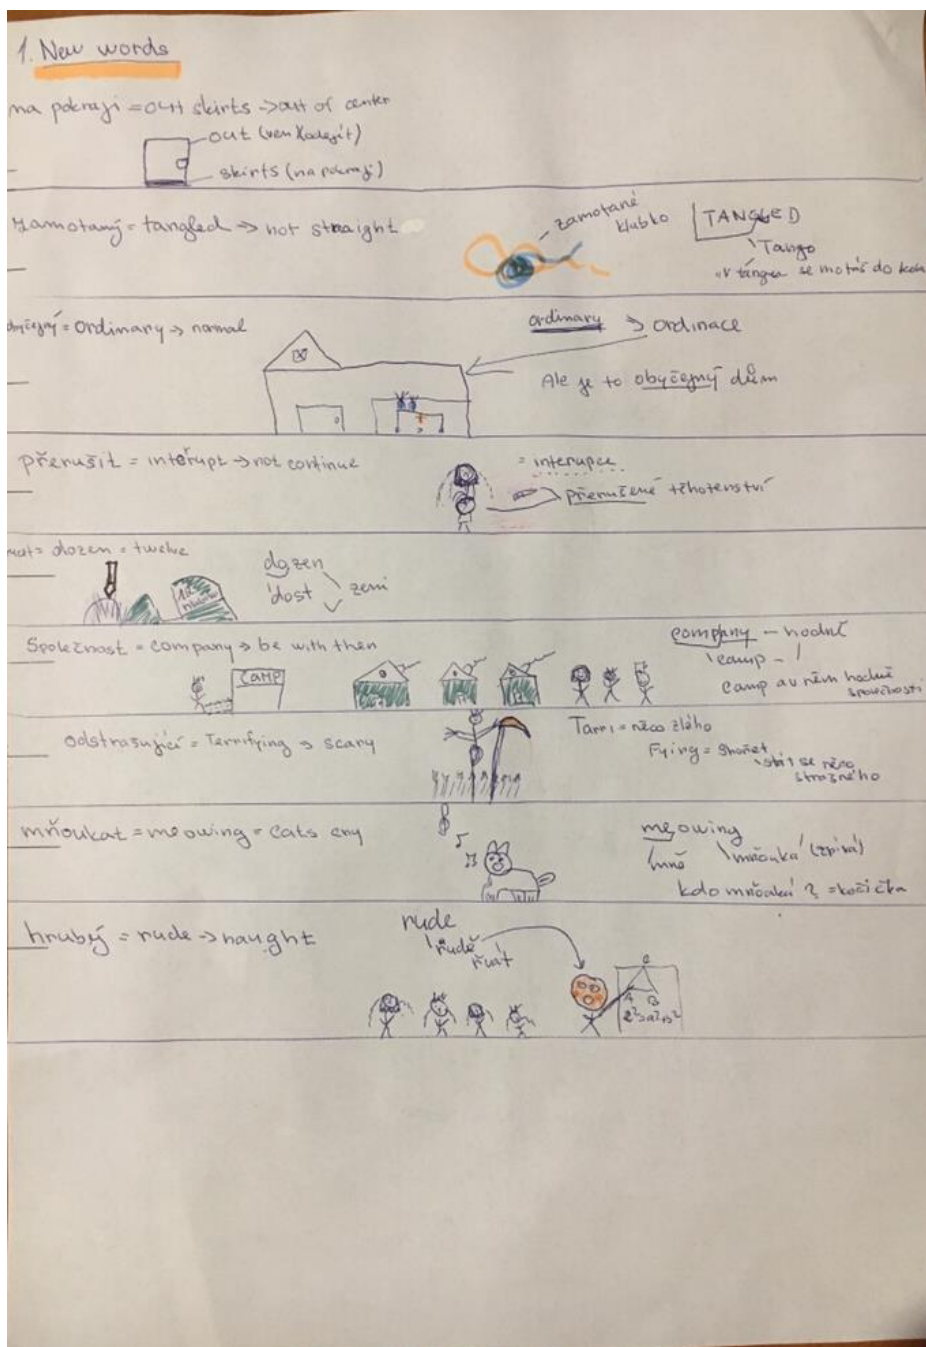 1. New words
na pokraji = out skirts -> out of center
out (ven
skirts (na pokraji)
zamotaný = tangled -> not straight
zamotané
klubko
TANGLED
Tango
v tangu se motáš do kola
obyčejný = ordinary -> normal
ordinary -> ordinace
Ale je to obyčejný dům
přerušit = interupt -> not continue
= interupce
přerušené těhotenství
dozen = twelve
dozen
dost zemi
Společnost = company -> be with then
company - hodně
camp -
camp a v něm hodně
společnosti
CAMP
odstrasující = Terrifying -> scary
Tarri = něco zlého
Fying =
stát se něco
strašného
mňoukat = meowing = cats cry
meowing
mně mňouká (zpívá)
kdo mňouká? = kočička
hrubý = rude -> naught
rude
rudě
řvát
A B